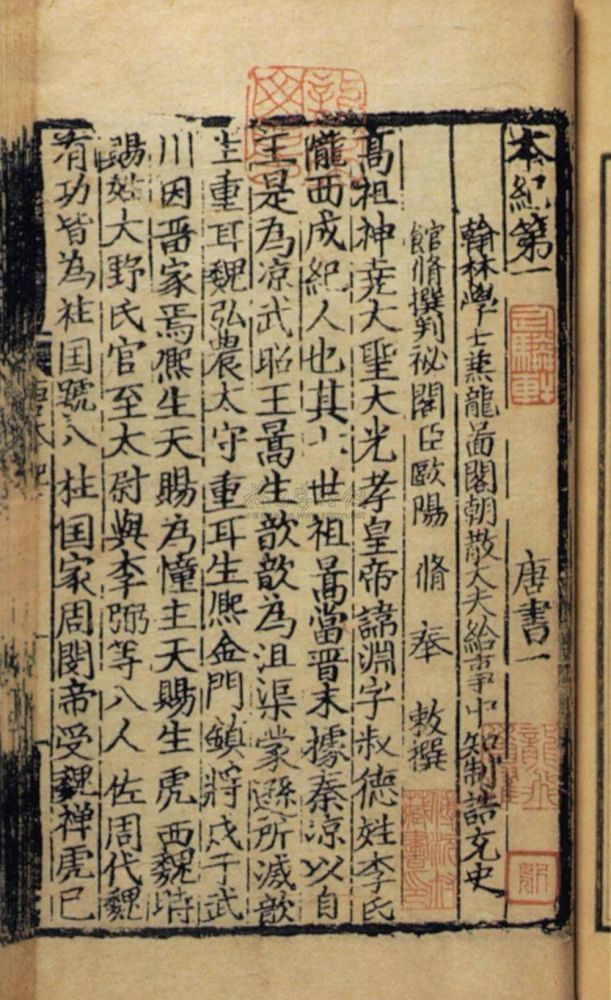 本紀第一 唐書一
翰林學士兼龍啚閣朝散大夫給事中知制誥充史
館脩撰判祕閣臣歐陽 脩 奉 敕撰
髙祖神堯大聖大光孝皇帝諱淵字叔德姓李氏
隴西成紀人也其七世祖暠當晉末據秦凉以自
王是為凉武昭王暠生歆歆為沮渠蒙遜所滅歆
生重耳魏弘農太守重耳生熈金門鎮將戍于武
川因畱家焉熈生天賜為幢主天賜生虎西魏時
賜姓大野氏官至太尉與李弼等八人佐周代魏
有功皆為柱国號八柱国家周閔帝受魏禅虎已